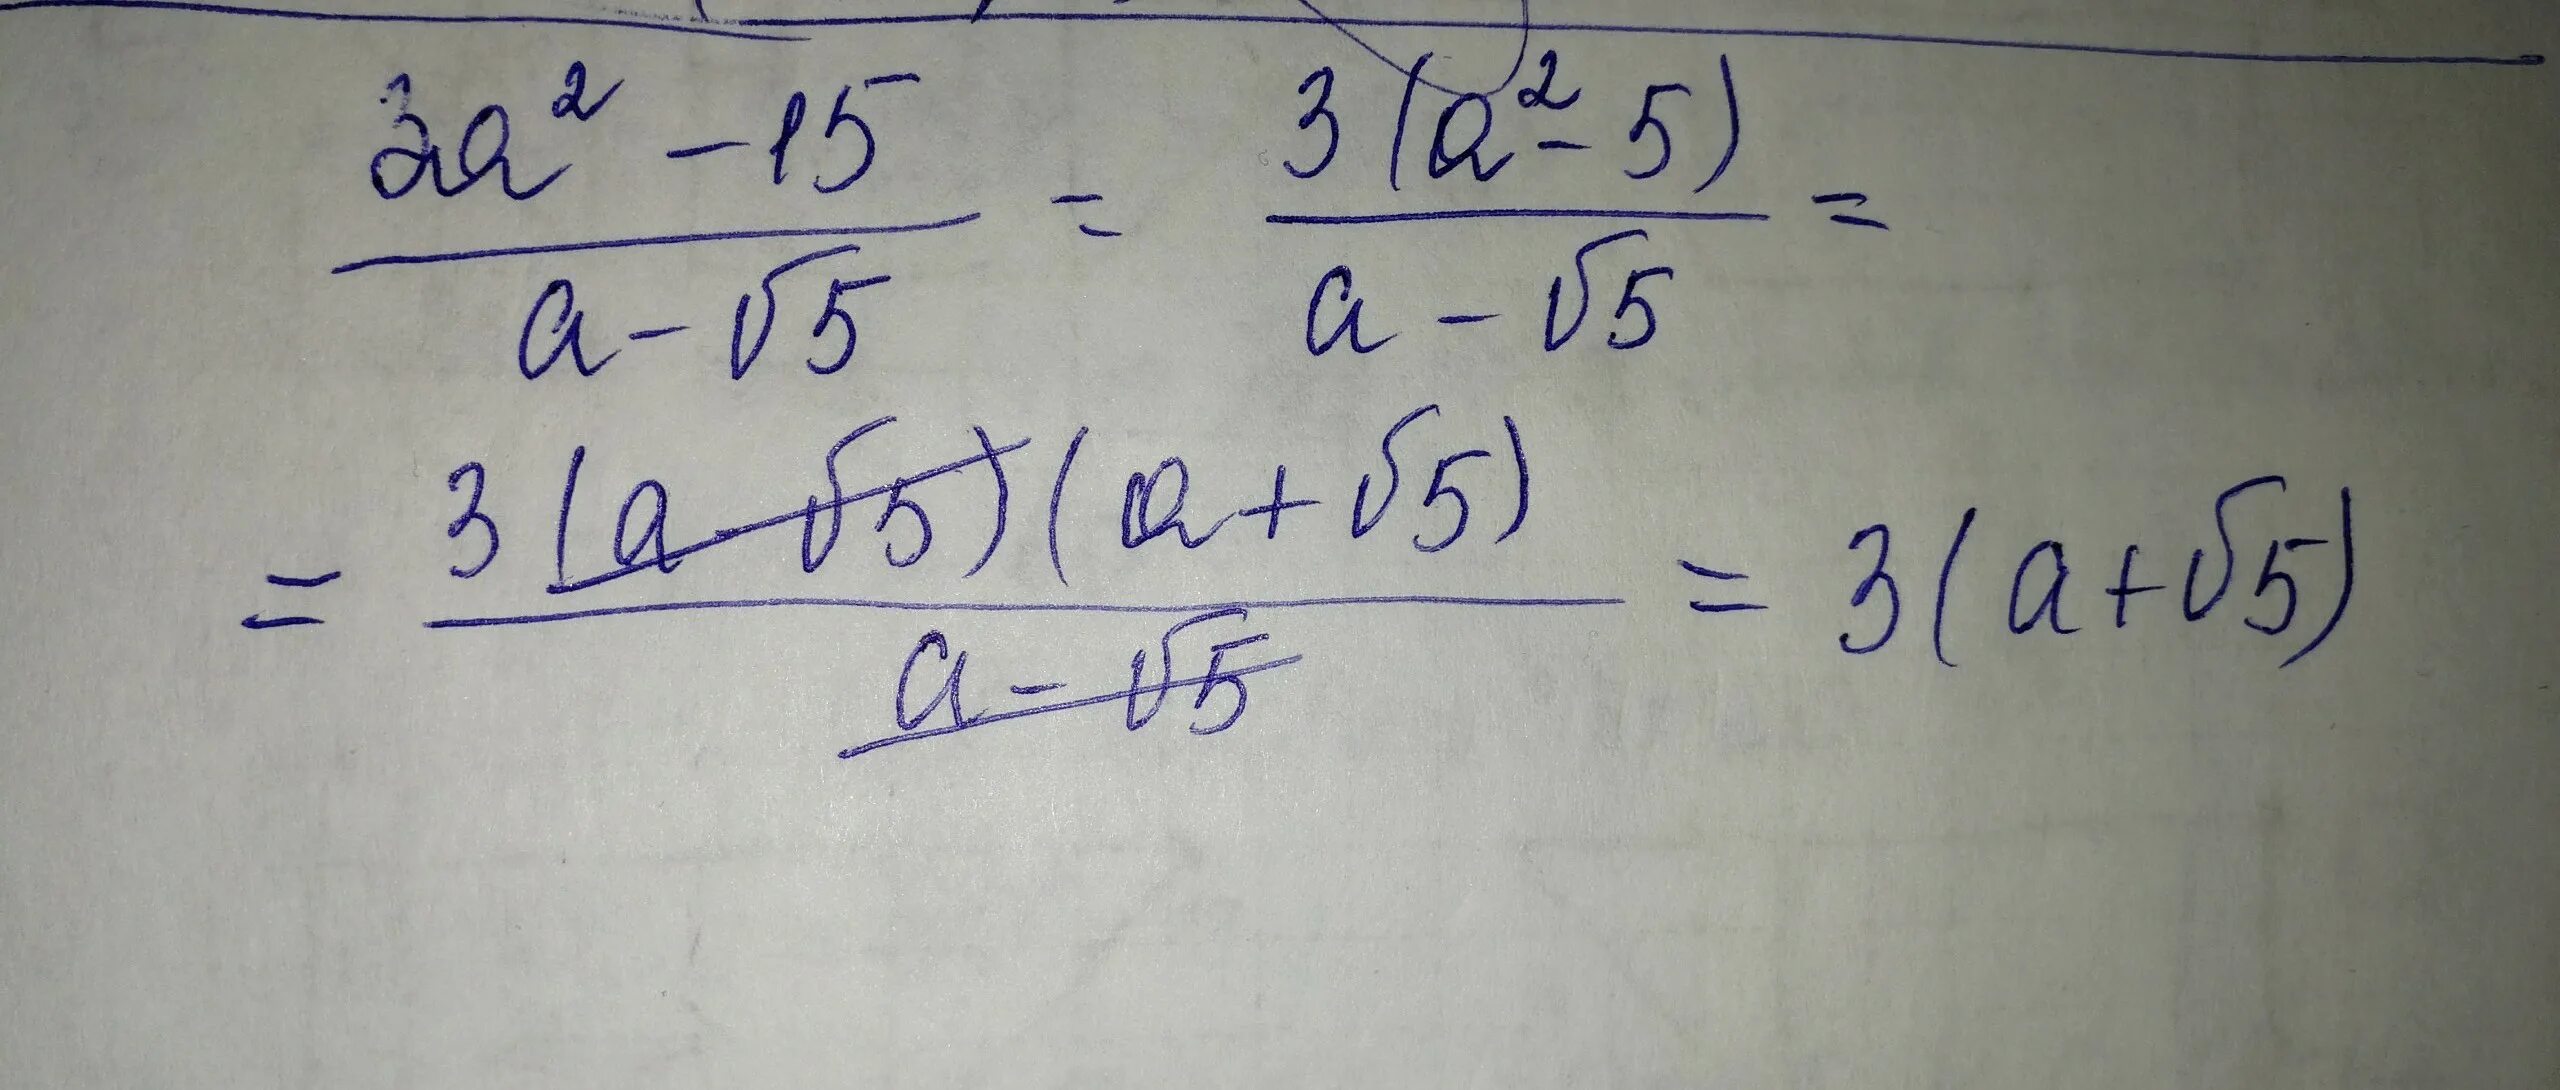 (3a² - 15)/(a - √5) = (3(a² - 5))/(a - √5) =
= (3(a - √5)(a + √5))/(a - √5) = 3(a + √5)